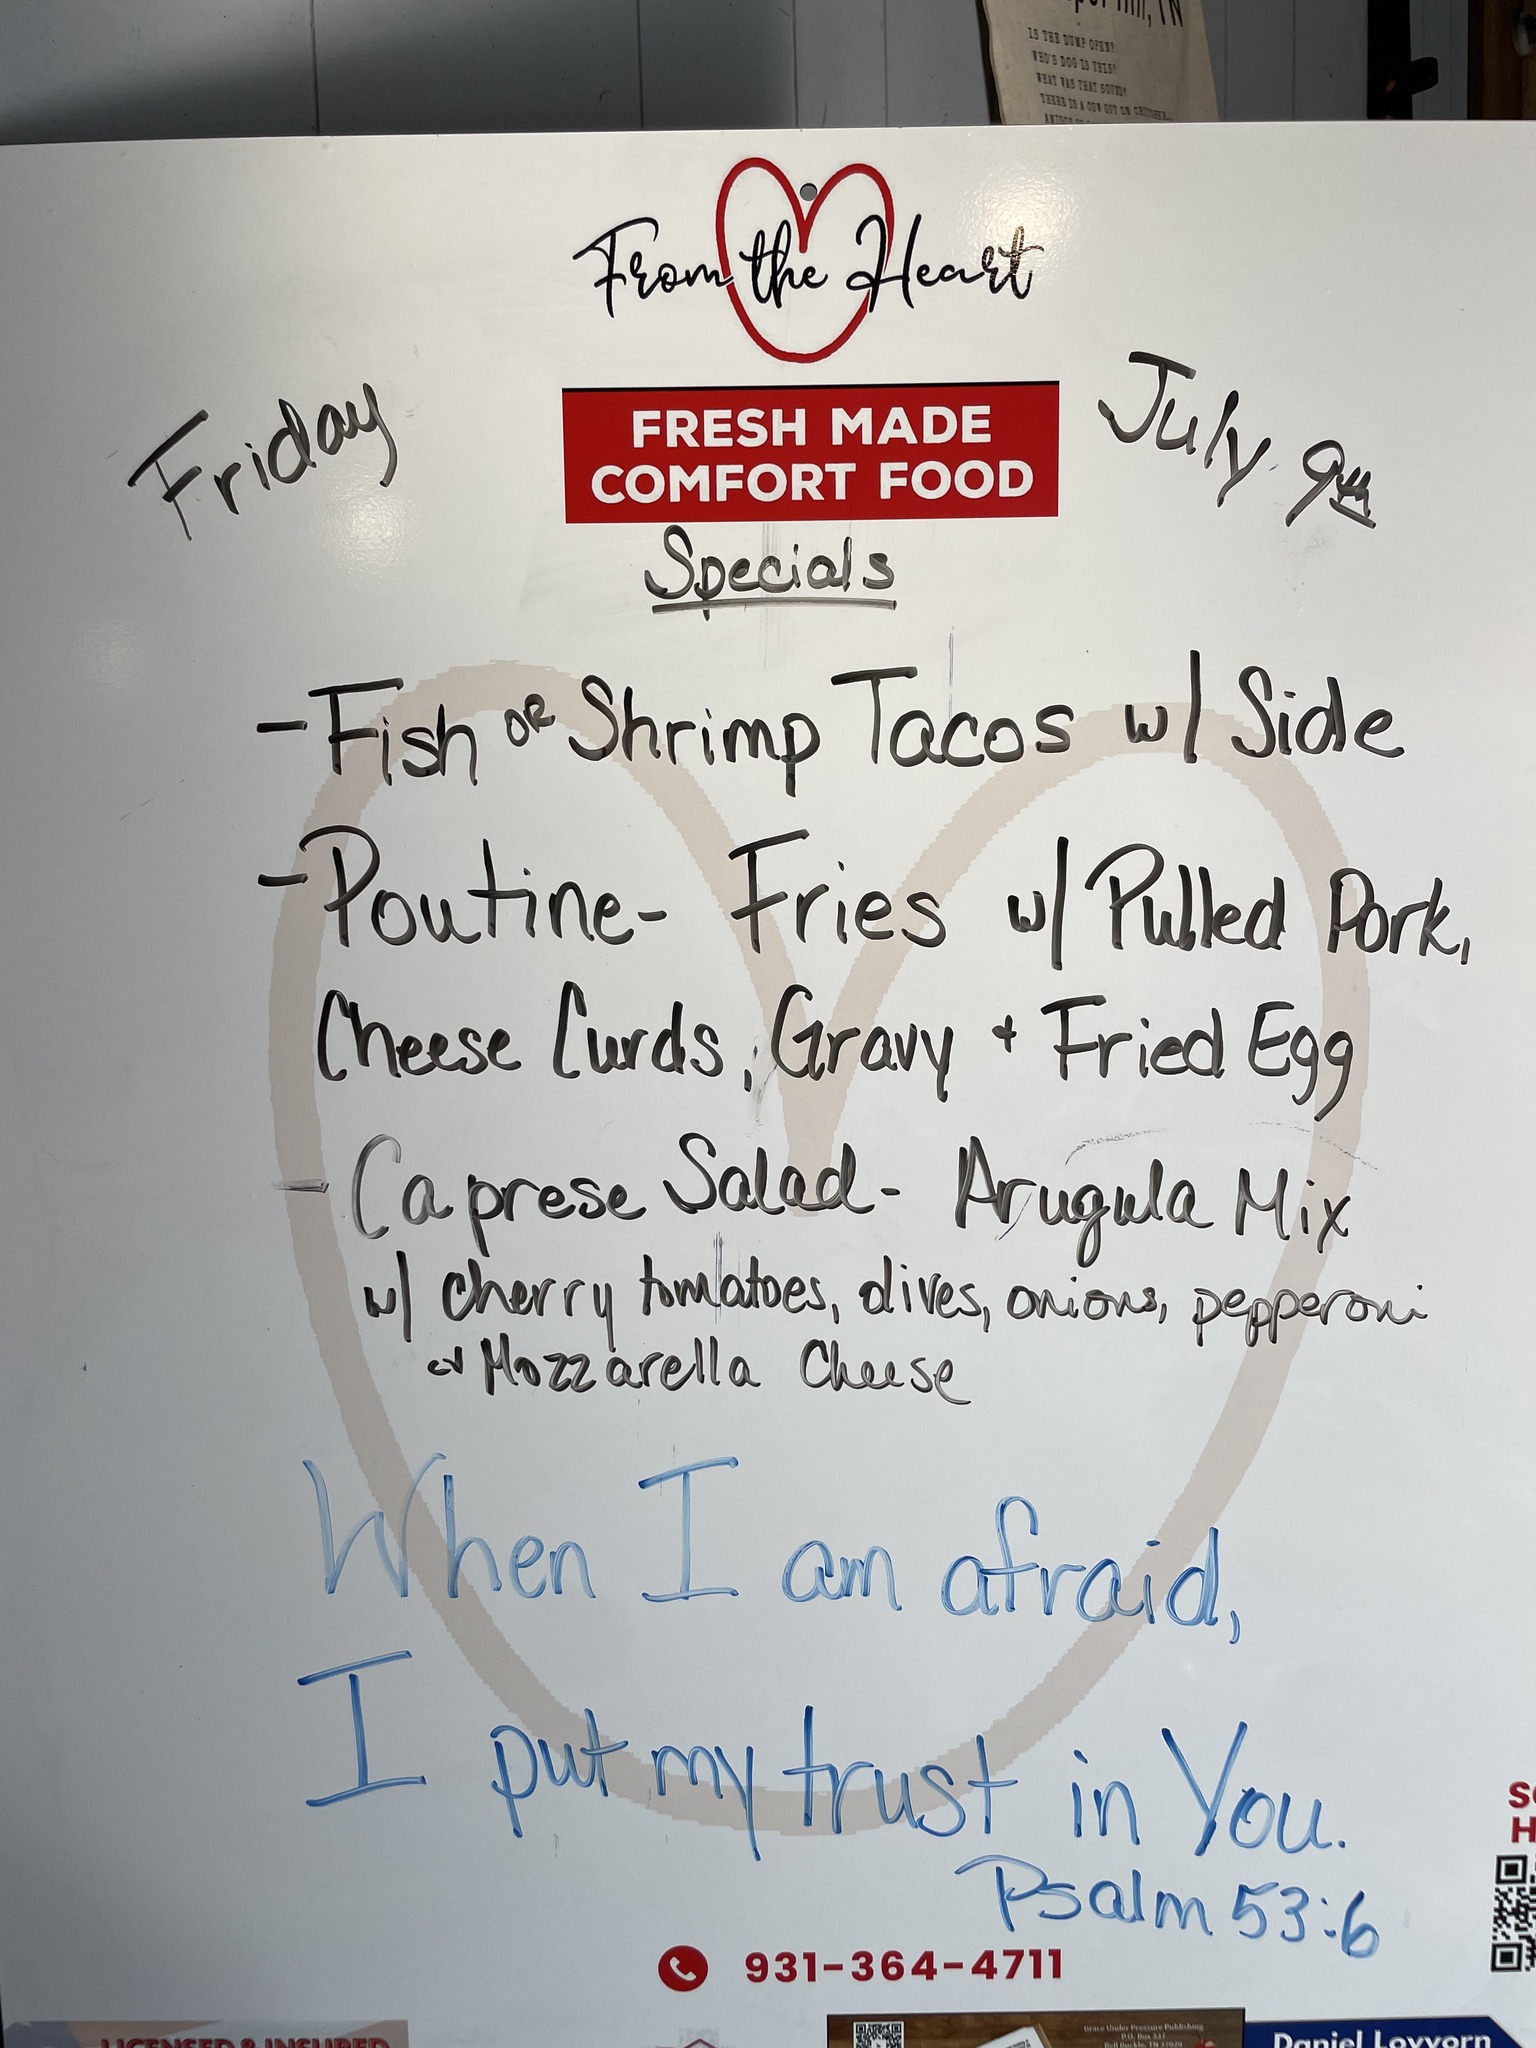 IS THE DUMP OPEN?
WHO'S DOG IS THIS?
WHAT WAS THAT SOUND?
THERE IS A COW OUT ON
From the Heart
FRESH MADE
COMFORT FOOD
Friday
July 9th
Specials
- Fish OR Shrimp Tacos w/ Side
- Poutine - Fries w/ Pulled Pork,
Cheese Curds, Gravy + Fried Egg
- Caprese Salad - Arugula Mix
w/ cherry tomatoes, olives, onions, pepperoni
+ Mozzarella Cheese
When I am afraid,
I put my trust in You.
Psalm 53:6
931-364-4711
LICENSED & INSURED
Grace Under Pressure Publishing
P.O. Box 337
Bell Buckle, TN 37020
Daniel Lovvorn